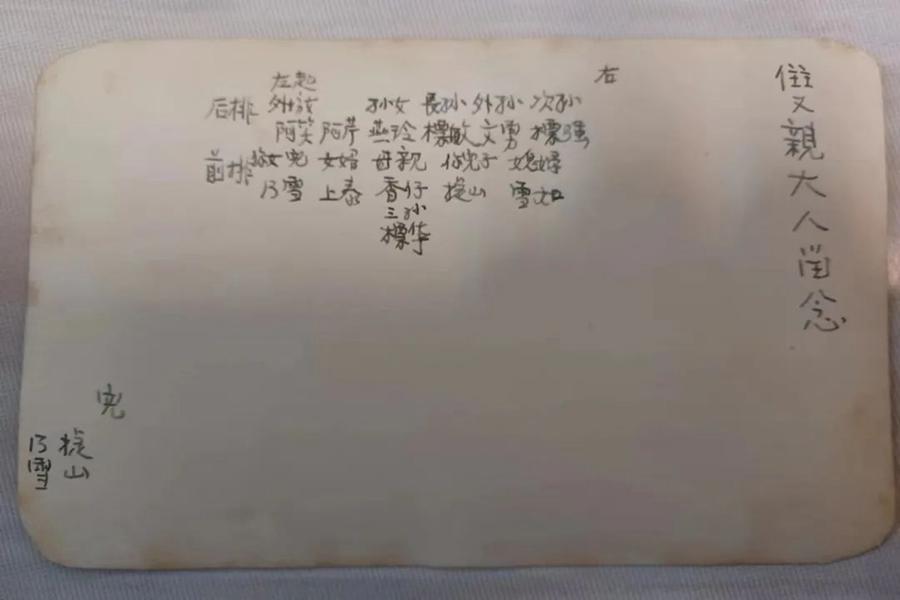 父親大人留念
左起
右
后排 外孫 孙女 長孙 外孙 次孙
阿笑 阿芹 燕玲 標敏 文勇 標强
前排 女兒 女婿 母親 儿子 媳婦
乃雪 上泰 香仔 提山 雪如
三孙
標华
兒
提山
乃雪